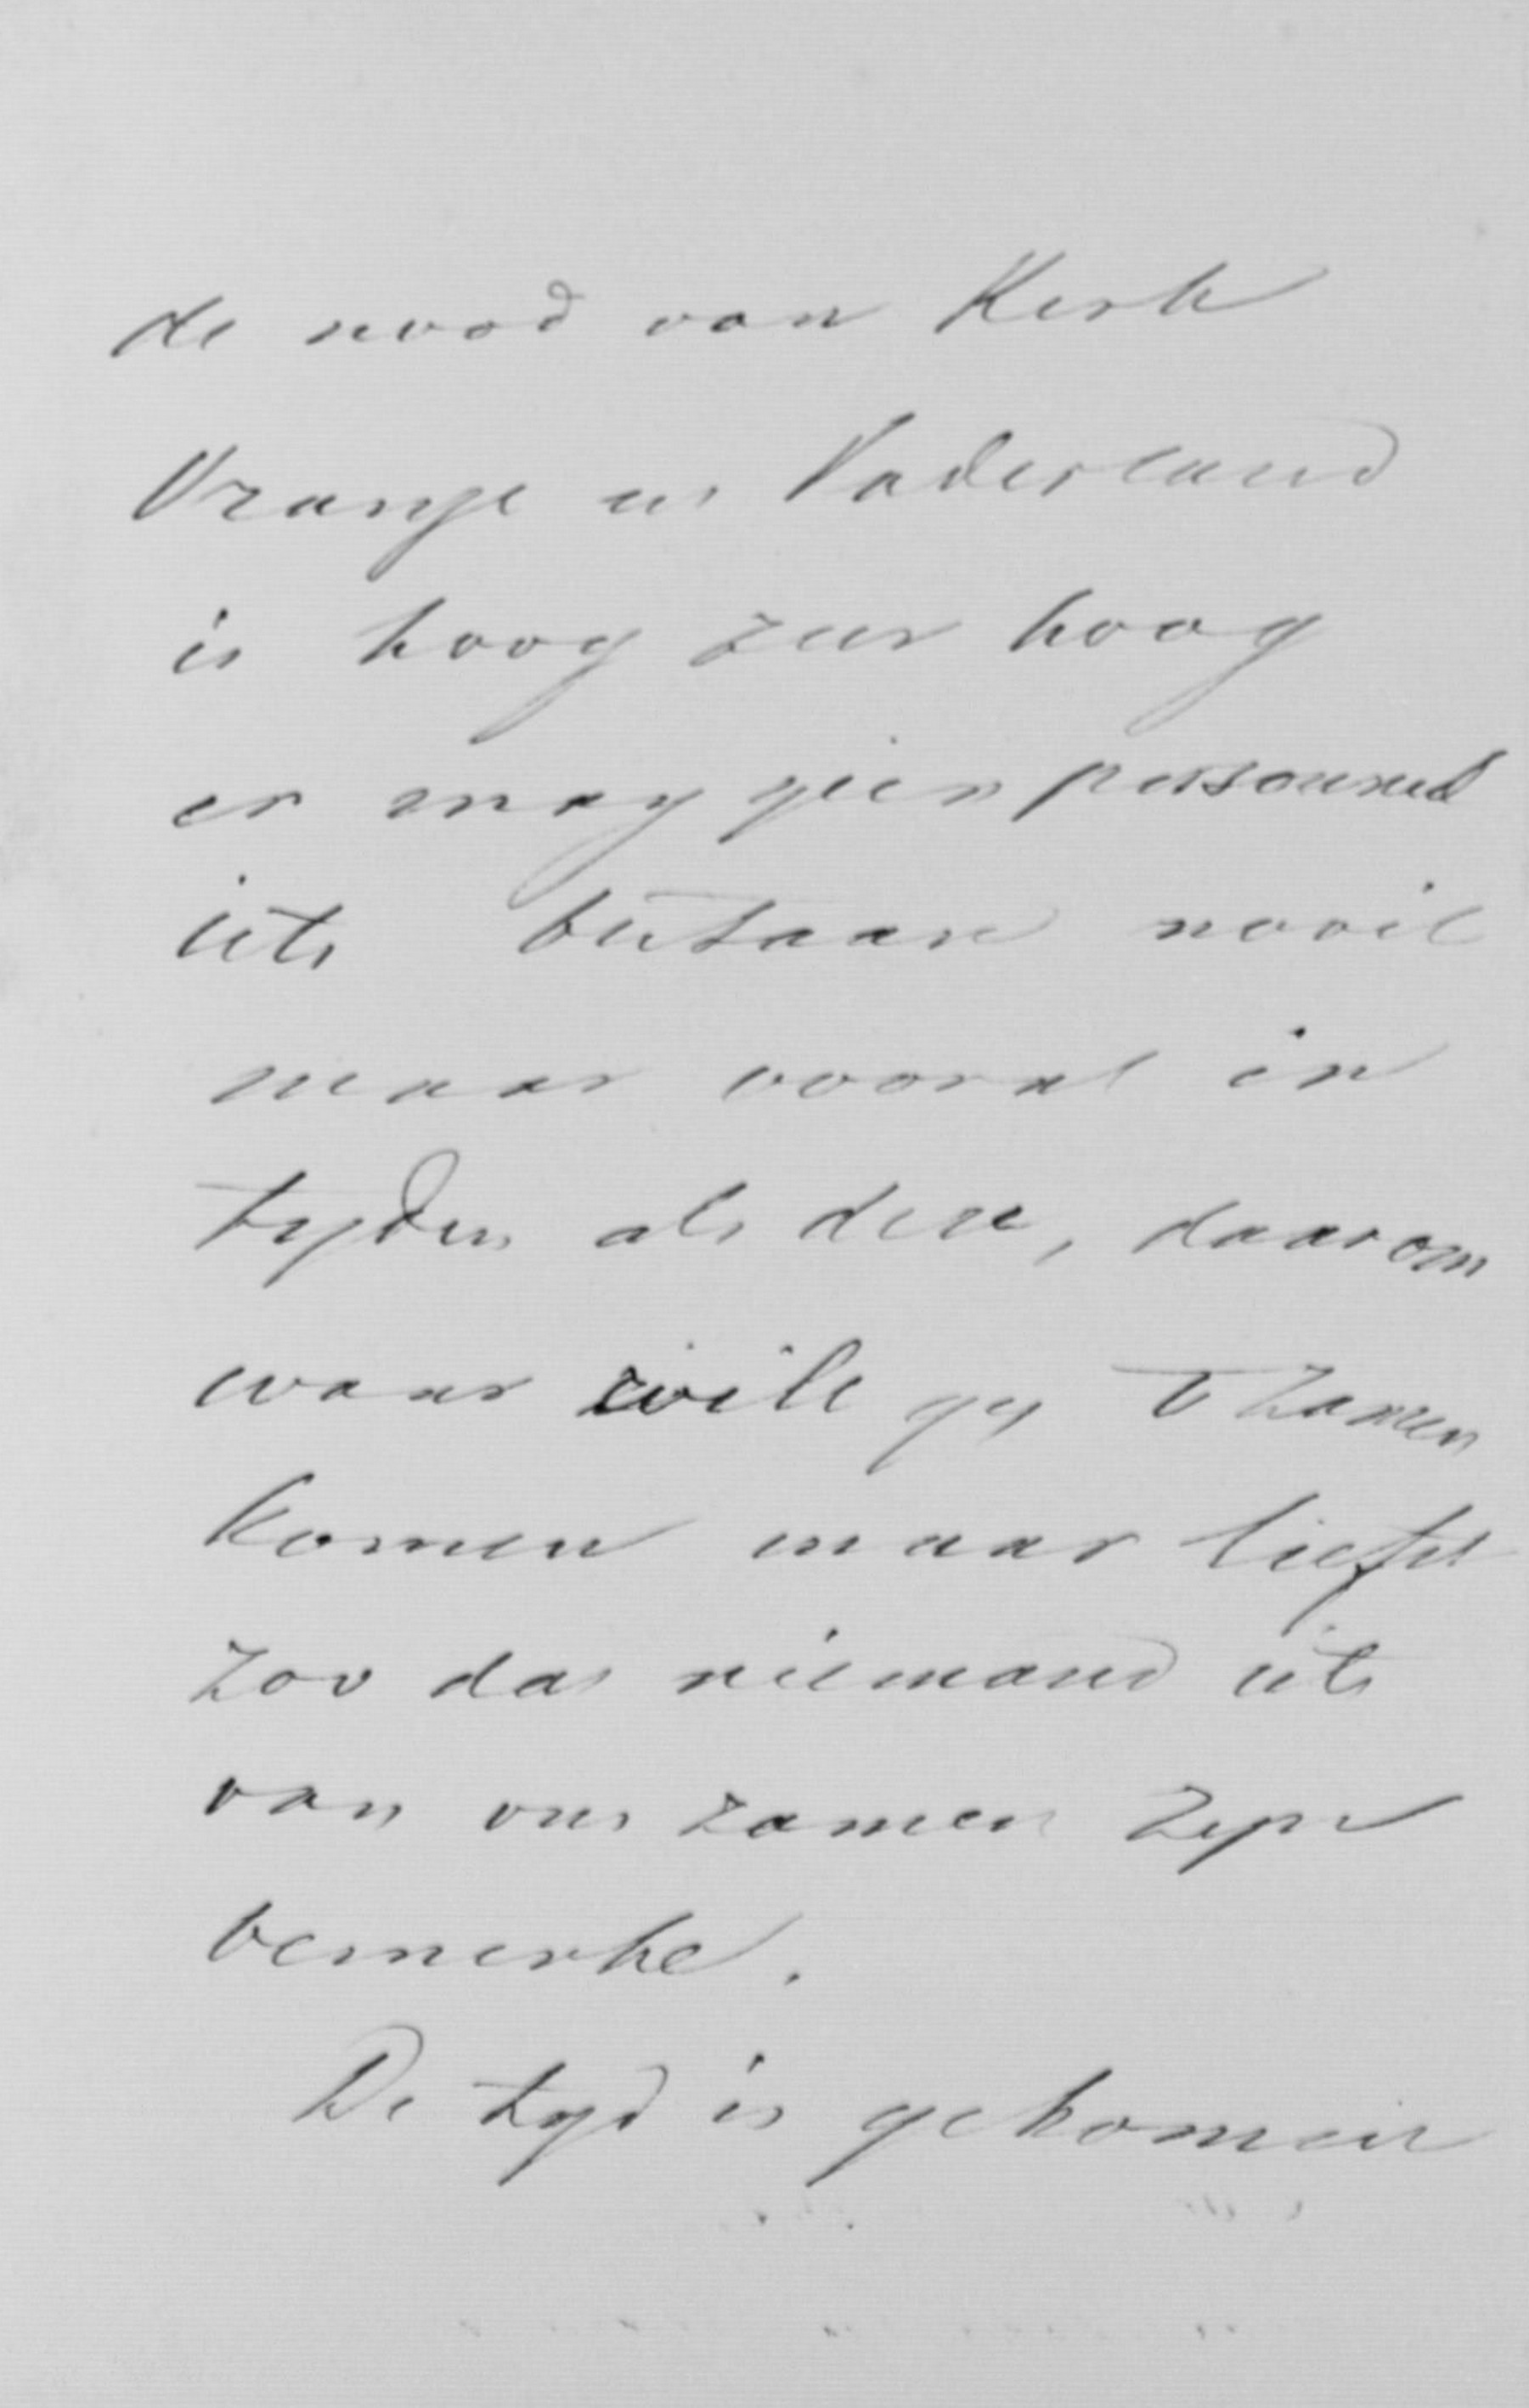 de nood van Kerk
Oranje en Vaderland
is hoog zeer hoog
er mag geen personeel
iets bestaan nooit
maar vooral in
tyden als deze, daarom
waar wilt gy t zamen
komen maar liefst
zoo dat niemand iets
van ons zamen zyn
bemerke.
De tyd is gekomen